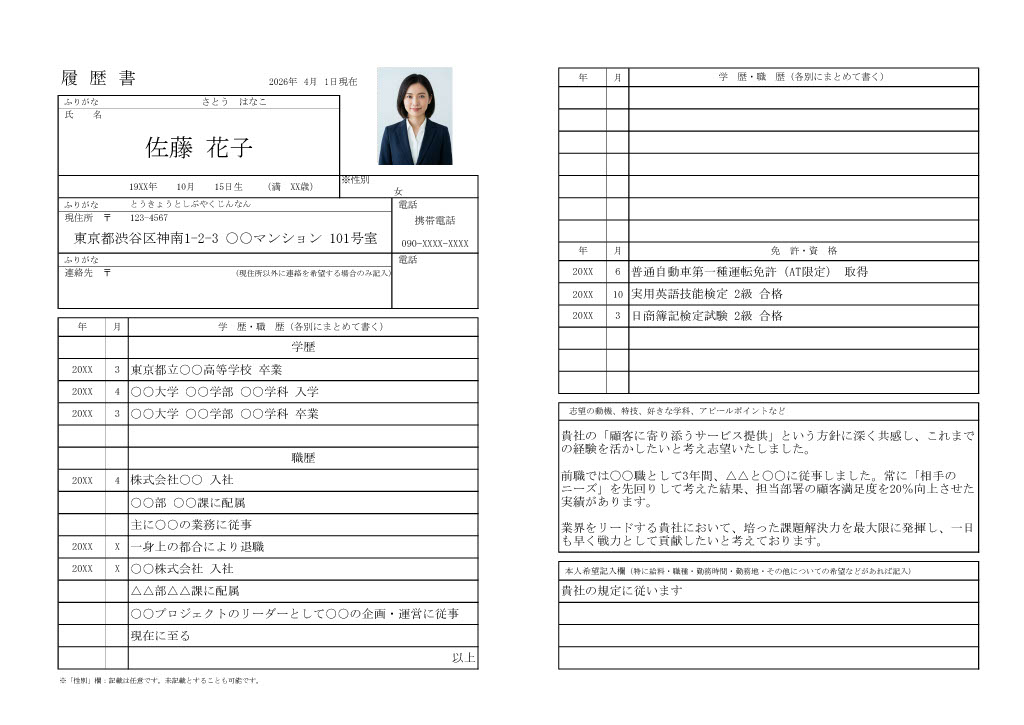 履 歴 書
2026年 4月 1日現在
ふりがな さとう はなこ
氏 名
佐藤 花子
19XX年 10月 15日生 (満 XX歳)
※性別
女
ふりがな とうきょうとしぶやくじんなん
電話
現住所 〒 123-4567
携帯電話
東京都渋谷区神南1-2-3 〇〇マンション 101号室
090-XXXX-XXXX
ふりがな
電話
連絡先 〒 (現住所以外に連絡を希望する場合のみ記入)
年 月 学 歴・職 歴（各別にまとめて書く）
学歴
20XX 3 東京都立〇〇高等学校 卒業
20XX 4 〇〇大学 〇〇学部 〇〇学科 入学
20XX 3 〇〇大学 〇〇学部 〇〇学科 卒業
職歴
20XX 4 株式会社〇〇 入社
〇〇部 〇〇課に配属
主に〇〇の業務に従事
20XX X 一身上の都合により退職
20XX X 〇〇株式会社 入社
△△部△△課に配属
〇〇プロジェクトのリーダーとして〇〇の企画・運営に従事
現在に至る
以上
※「性別」欄：記載は任意です。未記載とすることも可能です。
年 月 学 歴・職 歴（各別にまとめて書く）
年 月 免 許・資 格
20XX 6 普通自動車第一種運転免許（AT限定） 取得
20XX 10 実用英語技能検定 2級 合格
20XX 3 日商簿記検定試験 2級 合格
志望の動機、特技、好きな学科、アピールポイントなど
貴社の「顧客に寄り添うサービス提供」という方針に深く共感し、これまで
の経験を活かしたいと考え志望いたしました。
前職では〇〇職として3年間、△△と〇〇に従事しました。常に「相手の
ニーズ」を先回りして考えた結果、担当部署の顧客満足度を20%向上させた
実績があります。
業界をリードする貴社において、培った課題解決力を最大限に発揮し、一日
も早く戦力として貢献したいと考えております。
本人希望記入欄（特に給料・職種・勤務時間・勤務地・その他についての希望などがあれば記入）
貴社の規定に従います